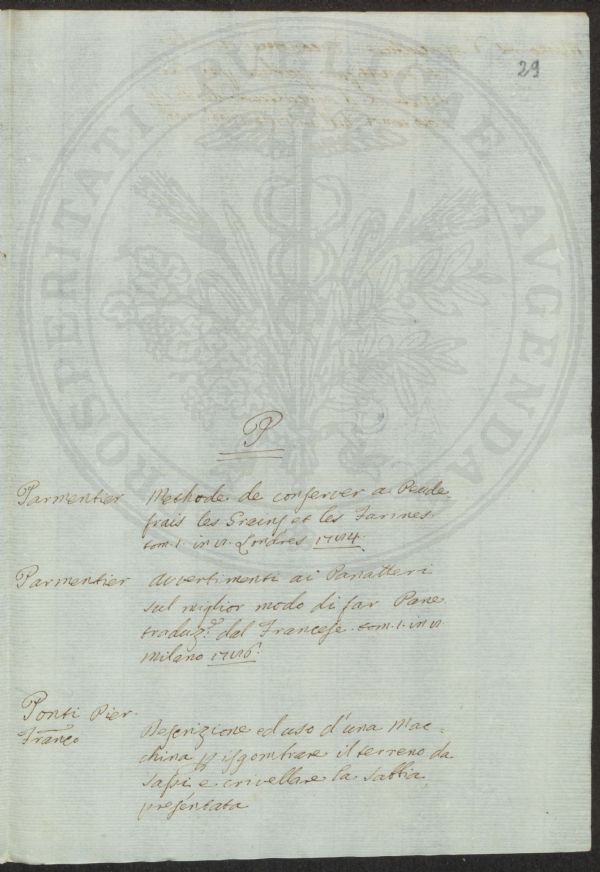 29
P
Parmentier Methode de conserver a Peude
frais les Grains et les Farines
tom. 1. in 8. Londres 1784.
Parmentier Avvertimenti ai Panatteri
sul miglior modo di far Pane
traduz.e dal Francese. tom. 1. in 8.
Milano 1786.
Ponti Pier
Franco Descrizione ed uso d'una Mac=
china p isgombrare il terreno da
Sassi e crivellare la Sabbia
presentata
PROSPERITATI PUBLICAE AVGENDAE